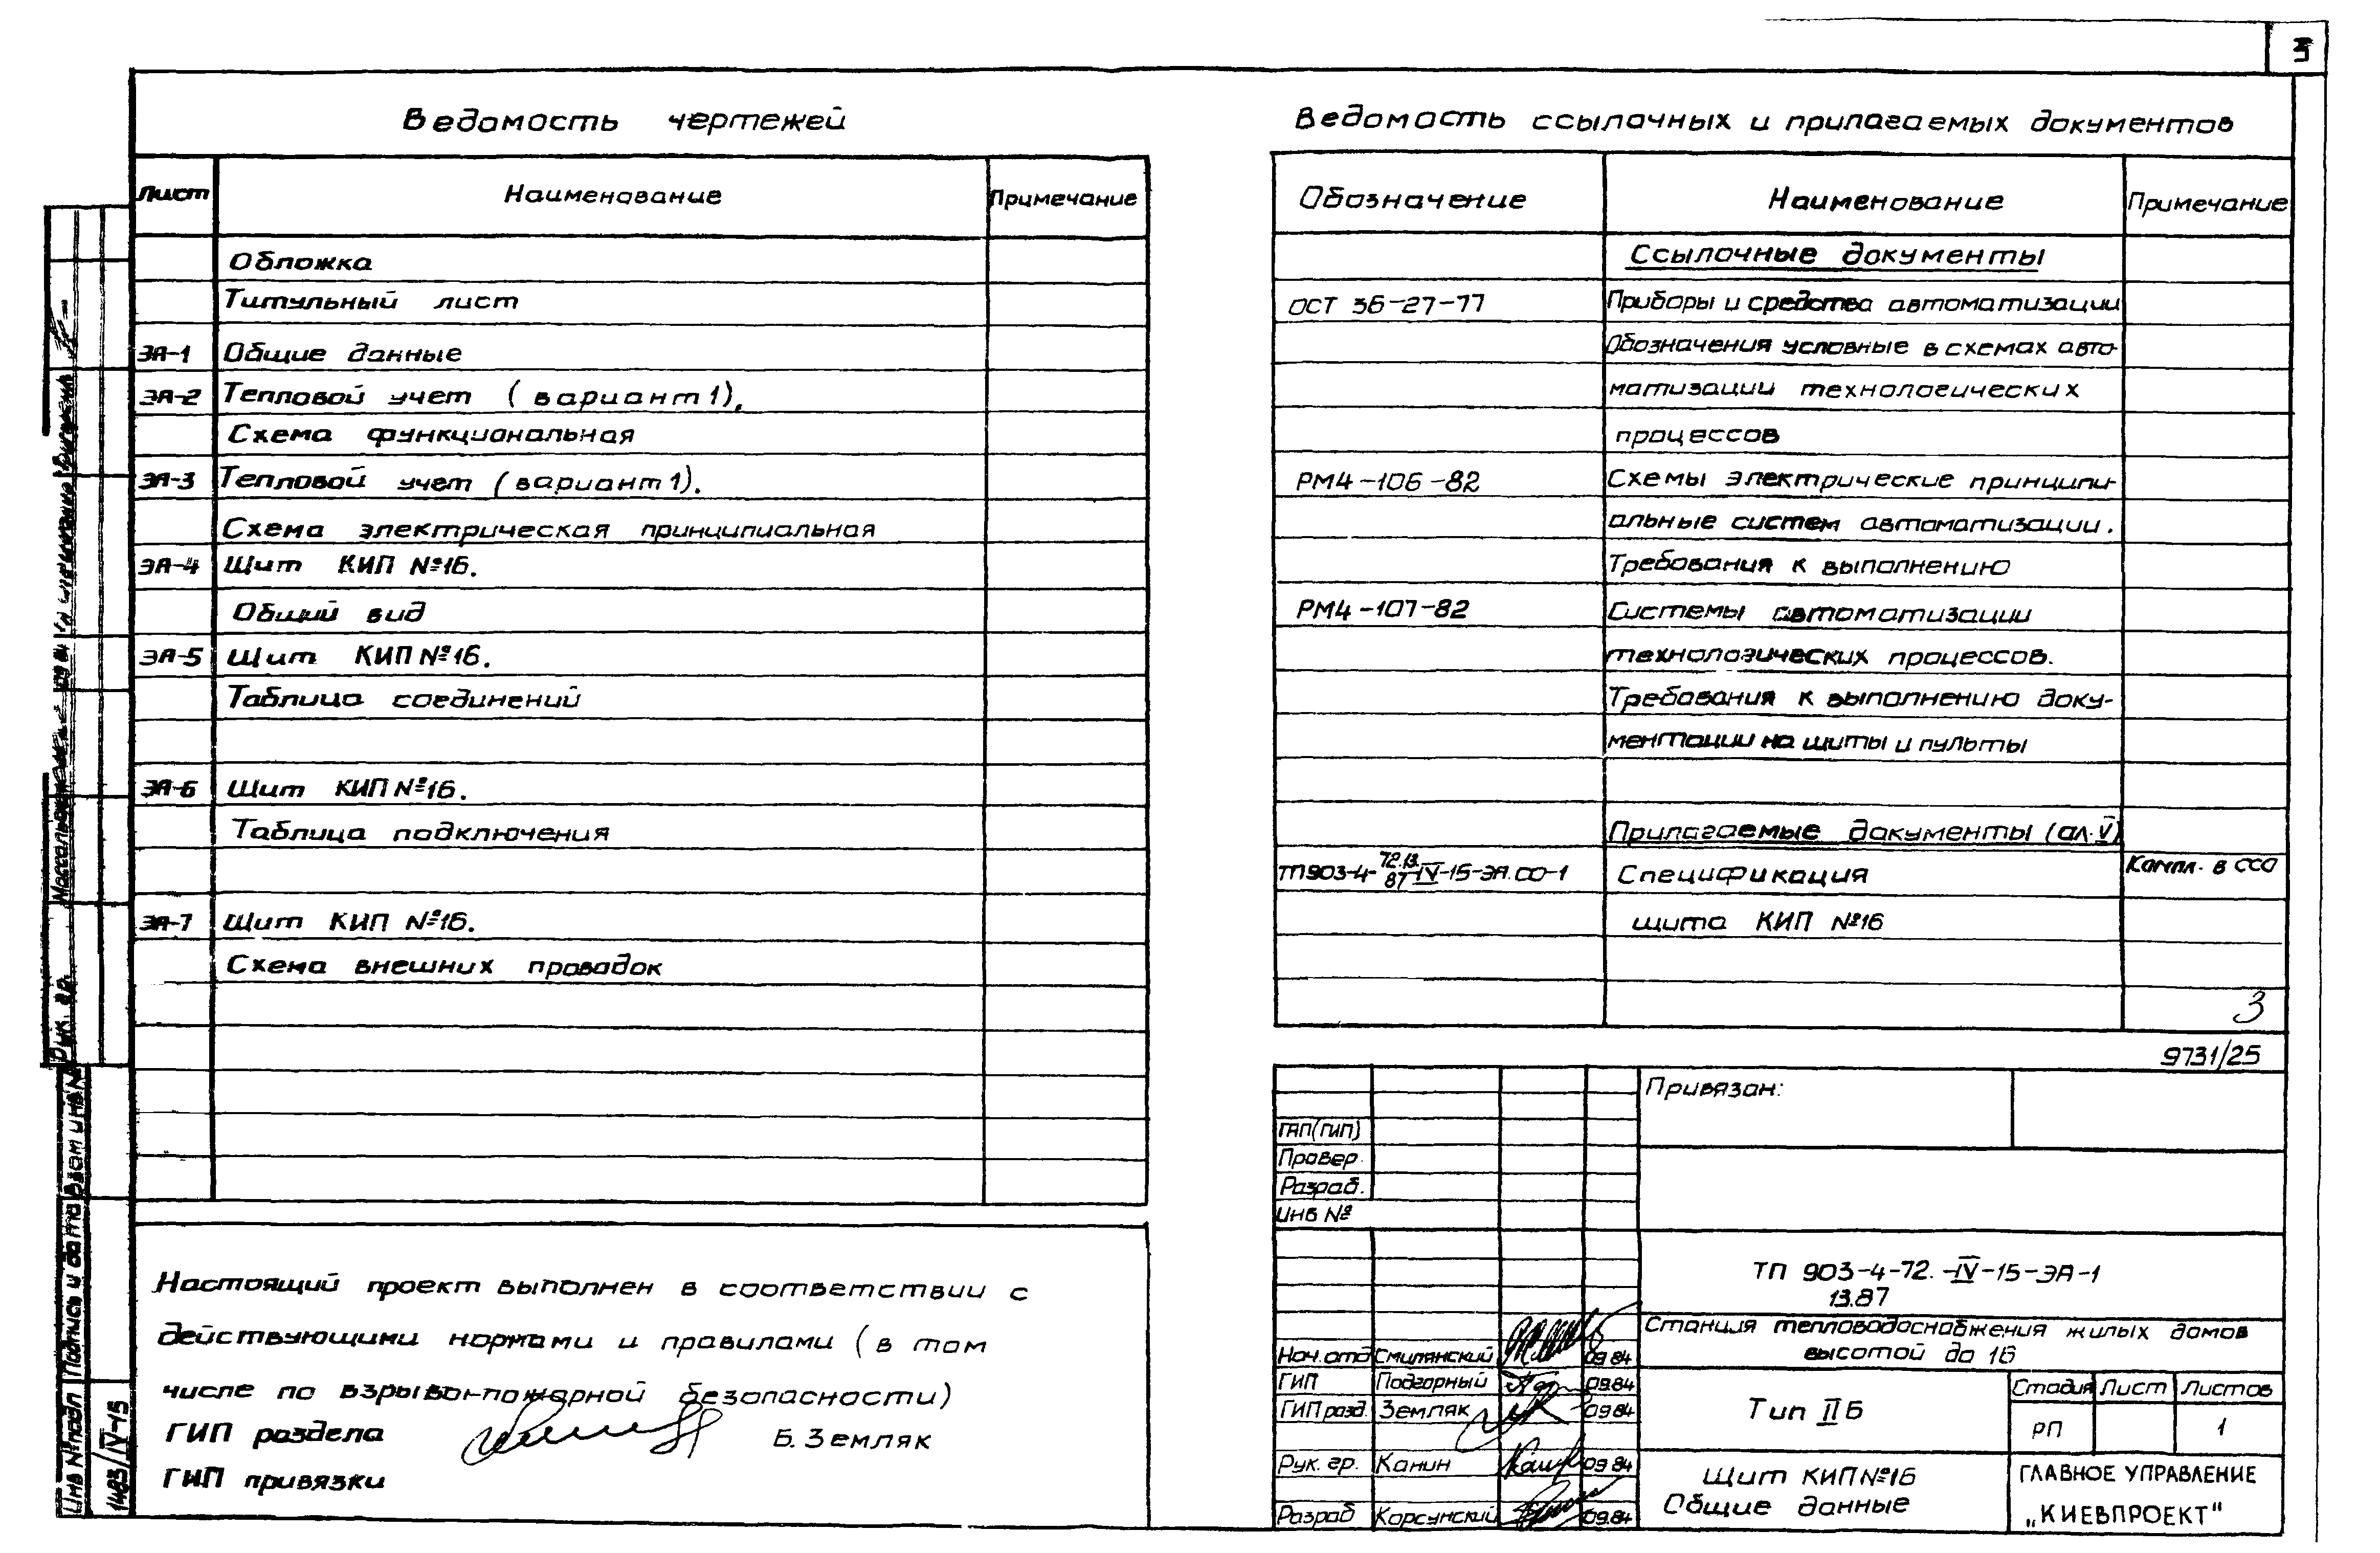 3
Ведомость чертежей
Лист Наименование Примечание
Обложка
Титульный лист
ЭА-1 Общие данные
ЭА-2 Тепловой учет (вариант 1).
Схема функциональная
ЭА-3 Тепловой учет (вариант 1).
Схема электрическая принципиальная
ЭА-4 Щит КИП №16.
Общий вид
ЭА-5 Щит КИП №16.
Таблица соединений
ЭА-6 Щит КИП №16.
Таблица подключения
ЭА-7 Щит КИП №16.
Схема внешних проводок
Настоящий проект выполнен в соответствии с
действующими нормами и правилами (в том
числе по взрыво-пожарной безопасности)
ГИП раздела Б. Земляк
ГИП привязки
Ведомость ссылочных и прилагаемых документов
Обозначение Наименование Примечание
Ссылочные документы
ОСТ 36-27-77 Приборы и средства автоматизации
Обозначения условные в схемах авто-
матизации технологических
процессов
РМ4-106-82 Схемы электрические принципи-
альные систем автоматизации.
Требования к выполнению
РМ4-107-82 Системы автоматизации
технологических процессов.
Требования к выполнению доку-
ментации на щиты и пульты
Прилагаемые документы (ал. V)
ТП903-4-72.13.87-IV-15-ЭА.СО-1 Спецификация Компл. в ССО
щита КИП №16
3
9731/25
Привязан:
ГАП(ГИП)
Провер.
Разраб.
Инв №
ТП 903-4-72.-IV-15-ЭА-1
13.87
Станция тепловодоснабжения жилых домов
высотой до 16
Нач. отд Смилянский 09.84
ГИП Подгорный 09.84
ГИП разд. Земляк 09.84
Рук. гр. Канин 09.84
Разраб Корсунский 09.84
Тип II Б
Стадия Лист Листов
РП 1
Щит КИП №16
Общие данные
ГЛАВНОЕ УПРАВЛЕНИЕ
„КИЕВПРОЕКТ"
Инв № подл Подпись и дата Взам инв №
1483/IV-15